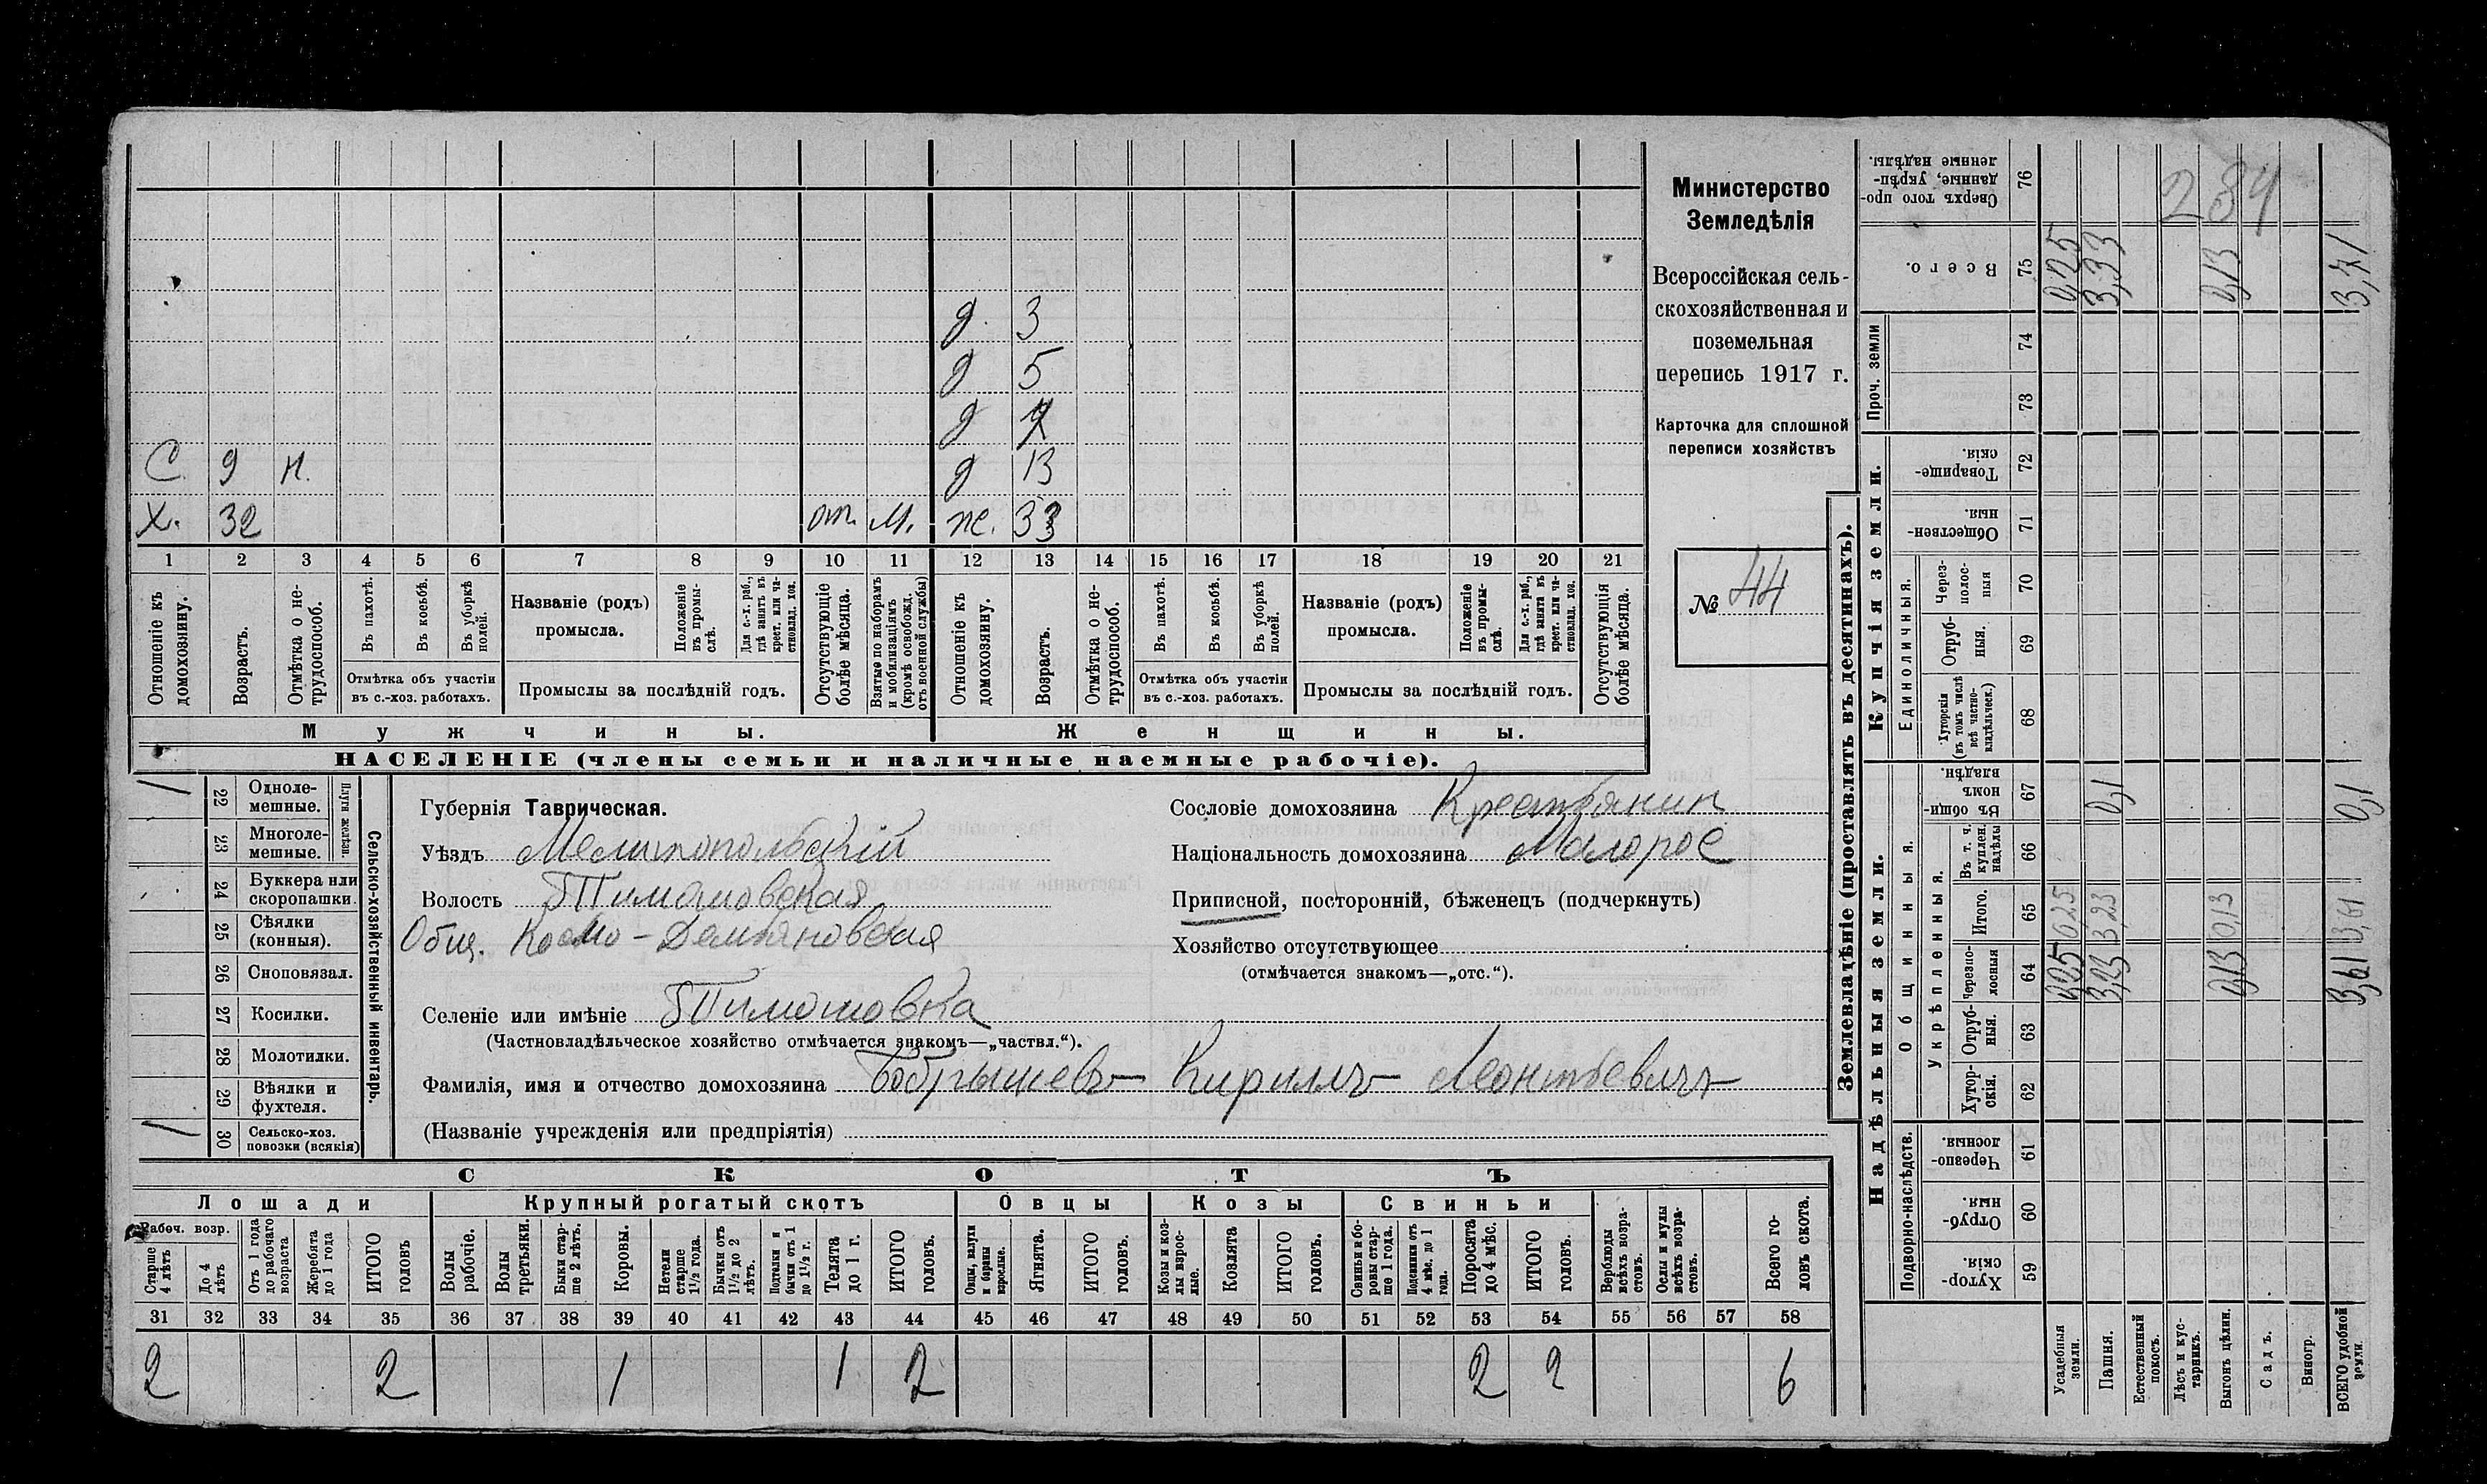 Министерство
Земледѣлія
Всероссійская сель-
скохозяйственная и
поземельная
перепись 1917 г.
Карточка для сплошной
переписи хозяйствъ
№ 44
д. 3
д 5
д 7
С. 9 н. д 13
Х. 32 от. М. ж. 33
1 2 3 4 5 6 7 8 9 10 11 12 13 14 15 16 17 18 19 20 21
Отношеніе къ домохозяину.
Возрастъ.
Отмѣтка о не-трудоспособ.
Въ пахотѣ.
Въ косьбѣ.
Въ уборкѣ полей.
Отмѣтка объ участіи
въ с.-хоз. работахъ.
Названіе (родъ)
промысла.
Положеніе въ промы-слѣ.
Для с.-х. раб., гдѣ занятъ въ крест. или ча-стновлад. хоз.
Промыслы за послѣдній годъ.
Отсутствующіе болѣе мѣсяца.
Взятые по наборамъ и мобилизаціямъ (кромѣ освобожд. отъ военной службы)
Отношеніе къ домохозяину.
Возрастъ.
Отмѣтка о не-трудоспособ.
Въ пахотѣ.
Въ косьбѣ.
Въ уборкѣ полей.
Отмѣтка объ участіи
въ с.-хоз. работахъ.
Названіе (родъ)
промысла.
Положеніе въ промы-слѣ.
Для с.-х. раб., гдѣ занята въ крест. или ча-стновлад. хоз.
Промыслы за послѣдній годъ.
Отсутствующія болѣе мѣсяца.
Мужчины. Женщины.
НАСЕЛЕНІЕ (члены семьи и наличные наемные рабочіе).
Сельско-хозяйственный инвентарь.
Плуги желѣзн.
22 Одноле-мешные.
23 Многоле-мешные.
24 Буккера или скоропашки.
25 Сѣялки (конныя).
26 Сноповязал.
27 Косилки.
28 Молотилки.
29 Вѣялки и фухтеля.
30 Сельско-хоз. повозки (всякія)
Губернія Таврическая.
Уѣздъ Мелитопольскій
Волость Тимошовская
Общ. Космо-Демьяновская
Селеніе или имѣніе Тимошовка
(Частновладѣльческое хозяйство отмѣчается знакомъ—„частвл.“).
Фамилія, имя и отчество домохозяина Бобрышевъ Кириллъ Леонтьевичъ
(Названіе учрежденія или предпріятія)
Сословіе домохозяина Крестьянин
Національность домохозяина Малорос
Приписной, посторонній, бѣженецъ (подчеркнуть)
Хозяйство отсутствующее
(отмѣчается знакомъ—„отс.“).
СКОТЪ
Лошади Крупный рогатый скотъ Овцы Козы Свиньи
Рабоч. возр.
Старше 4 лѣтъ
До 4 лѣтъ
Отъ 1 года до рабочаго возраста
Жеребята до 1 года
ИТОГО головъ
Волы рабочіе.
Волы третьяки.
Быки стар-ше 2 лѣтъ.
Коровы.
Нетели старше 1½ года.
Бычки отъ 1½ до 2 лѣтъ.
Подтелки и бычки отъ 1 до 1½ г.
Телята до 1 г.
ИТОГО головъ.
Овцы, валухи и бараны взрослые.
Ягнята.
ИТОГО головъ.
Козы и коз-лы взрос-лые.
Козлята
ИТОГО головъ.
Свиньи и бо-ровы стар-ше 1 года.
Подсвинки отъ 4 мѣс. до 1 года.
Поросята до 4 мѣс.
ИТОГО головъ.
Верблюды всѣхъ возра-стовъ.
Ослы и мулы всѣхъ возра-стовъ.
Всего го-ловъ скота.
31 32 33 34 35 36 37 38 39 40 41 42 43 44 45 46 47 48 49 50 51 52 53 54 55 56 57 58
2 2 1 1 2 2 2 6
Землевладѣніе (проставлять въ десятинахъ).
Надѣльныя земли. Купчія земли. Проч. земли
Подворно-наслѣдств. Общинныя. Укрѣпленныя. Единоличныя.
Хутор-скія. 59
Отруб-ныя. 60
Черезпо-лосныя. 61
Хутор-скія. 62
Отруб-ныя. 63
Черезпо-лосныя 64 0,25 3,23 0,13 3,61
Итого. 65 0,25 3,23 0,13 3,61
Въ т. ч. куплен. надѣлы 66
Въ общин-номъ владѣн. 67 0,1 0,1
Хуторскія (въ томъ числѣ всѣ частно-владѣльческ.) 68
Отруб-ныя. 69
Через-полос-ныя 70
Обществен-ныя. 71
Товарище-скія. 72
73
74
Всего. 75 0,25 3,33 0,13 3,71
Сверхъ того про-данные, укрѣп-ленные надѣлы. 76
284
Усадебныя земли.
Пашня.
Естественный покосъ.
Лѣсъ и кус-тарникъ.
Выгонъ цѣлин.
Садъ.
Виногр.
ВСЕГО удобной земли.